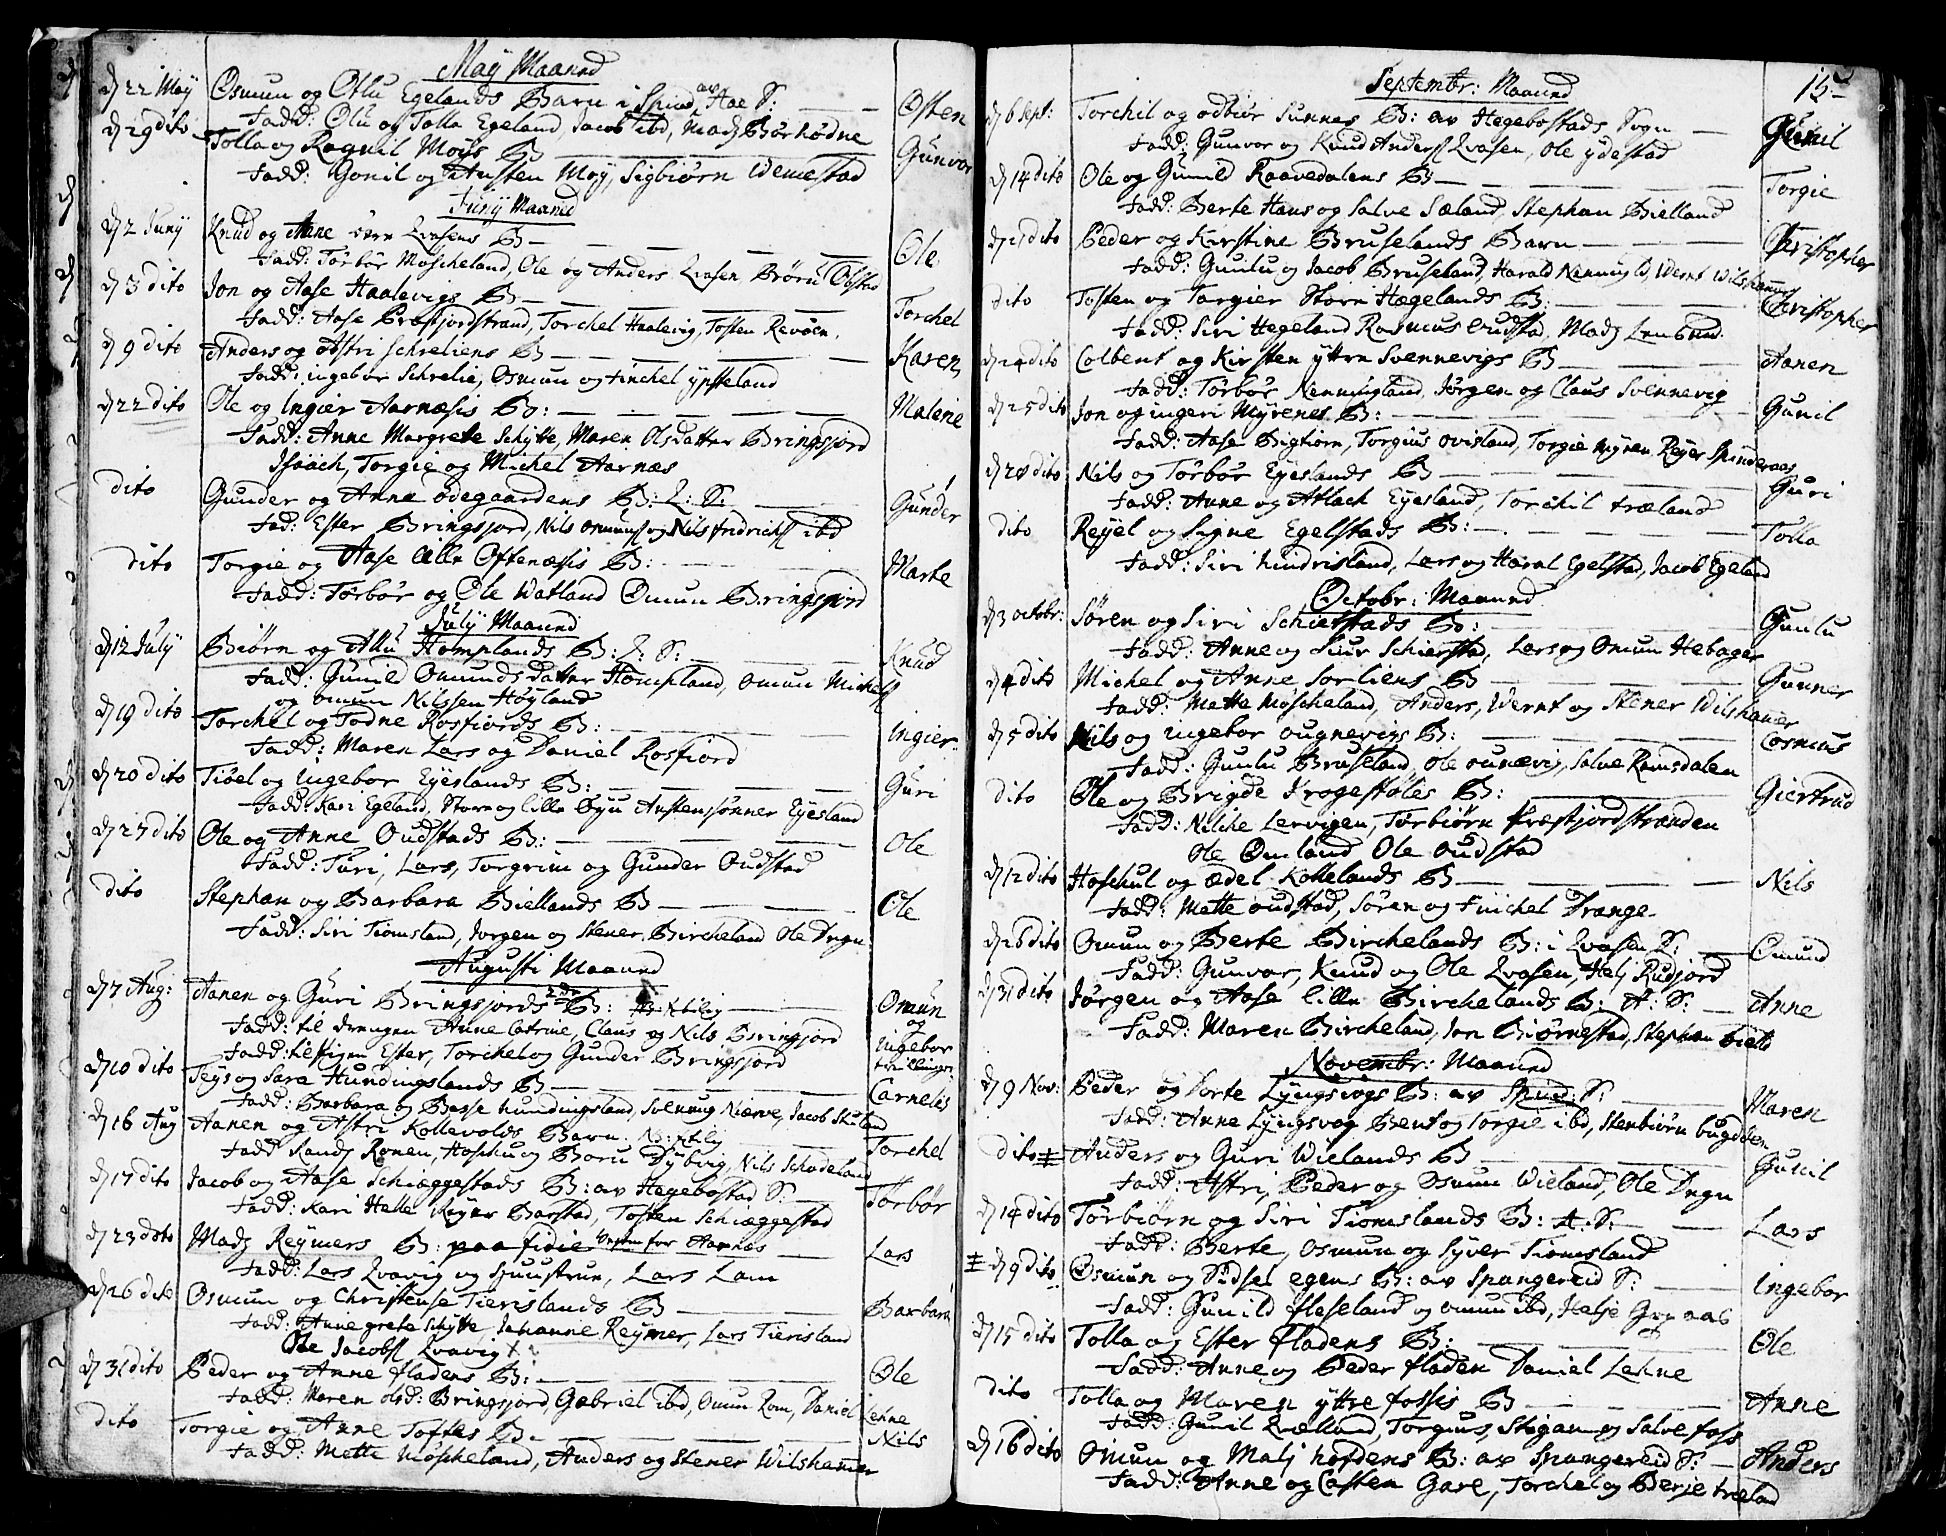 May Maaned
d 22 May Osmun og Ollu Egelands Barn i Spind av Aae S: — Osten
Fadd: Olu og Tolla Egeland, Jacob ibd, Madz Börhødne
d 29 dito Tolla og Ragnil Moÿs B: — Gunvor
Fadd: Gonil og Austen Moÿ, Sigbiørn Wemestad
Junÿ Maaned
d 2 Junÿ Knud og Anne Qvasens B — Ole
Fadd: Torbør Møscheland, Ole og Anders Qvasen Brørn
d 3 dito Jon og Aase Haalevigs B — Torchel
Fadd: Aase Præstjordstrand, Torchel Haalevig, Tosten Revöen.
d 9 dito Anders og Astri Schreliens B — Karen
Fadd: ingebor Schrelie, Osmun og Finchel ÿpsteland
d 22 dito Ole og Ingier Aarnæsis B: — Malene
Fadd: Anne Margrete Schÿtte, Maren Olsdatter Bringsjord
Isaach, Torgie og Michel Aarnæs
dito Gunder og Anne ødegaardens B: Z: S: — Gunder
Fad: Ester Bringsjord, Nils Omuns og Nils fridrichs ibd
dito Torgie og Aase lille Oftenæsis B: — Marte
Fadd: Torbør og Ole Watland Omun Bringsjord
Julÿ Maaned
d 12 Julÿ Biørn og Allu Homplands B: Z: S: — Knud
Fadd: Gunild Omundsdatter Hompland, Omun Michels
og Omun Nilssen Höÿland
d 19 dito Torchel og Todne Rosfiords B: — Ingier
Fadd: Maren Lars og Daniel Rosfiord
d 20 dito Tiöel og Ingebor Eÿeslands B: — Guri
Fadd: Kari Egeland, Storn og lille Øÿu Austensönner Eÿesland
d 27 dito Ole og Anne Oudstads B: — Ole
Fadd: Turi, Lars, Torgrim og Gunder Oudstad
dito Stephan og Barbara Biellands B — Ole
Fadd: Siri Tiomsland, Jorgen og Stener Bircheland Ole Dÿgn
Augusti Maaned
d 7 Aug: Aanen og Guri Bringsjords 2de B: — Omun
Fadd: til drengen Anne Catrine, Claus og Nils Bringsjord og
Fadd: til Pigen Ester, Torchel og Gunder Bringsjord Ingebor tvillinger
d 10 dito Teÿs og Sara Hundingslands B — Carnelis
Fadd: Barbara og Basse hundingsland, Svennug Niærve, Jacob Skuland
d 16 Aug Aanen og Astri Kollevolds Barn. — Torchel
Fadd Randi Ronen, Hoskuu og Boru Dÿbvig, Nils Schadeland
d 17 dito Jacob og Aase Schiæggestads B: av Hegebostad S: — Torbör
Fadd: Kari Helle Reÿer Barstad, Tosten Schiæggestad
d 23 dito Madz Reÿmers B: paa fidie for Aarnæs — Lars
Fadd: Lars Qvavig og Sjuustrun, Lars Lam
d 26 dito Osmun og Christense Tierislands B — Barbara
Fadd: Anne grete Schÿtte, Johanne Reÿmer, Lars Tierisland
Ole Jacobs Qvavig
d 31 dito Peder og Anne fladens B: — Ole
Fadd: Maren olsd: Bringsjord, Gabriel ibd, Omun Rom, Daniel Lehne
dito Torgie og Anne Toftes B. — Nils
Fadd: Mette Möscheland, Anders og Stener Wilshamer
15
Septembr: Maaned
d 6 Sept: Torchil og Odbiör Sunnes B: av Hegebostads Sogn — Gunil
Fadd: Gunvor og Knud Anders Qvasen, Ole ÿdestad
d 14 dito Ole og Gunild Raavedalens B — Torgie
Fadd: Berte Haus og Salve Sæland, Stephan Bielland
d 21 dito Peder og Kirstine Bruselands Barn — Christopher
Fadd: Gunlu og Jacob Bruseland, Harald Nenning ld, Wernt Wilshamer
dito Tosten og Torgier Storn Hægelands B: — Christopher
Fadd: Siri Hegeland Rasmus Oudstad, Madz Lensted.
d 24 dito Colbent og Kirsten ÿttre Svennevigs B — Aanen
Fadd: Torbör Nenningland, Jørgen og Claus Svennevig
d 25 dito Jon og ingeri Mÿrenes B: — Gunil
Fadd: Aase Bigtiørn, Torgius ovisland, Torgie mÿren Reÿer Spinderaas
d 28 dito Nils og Torbør Eÿeslands B — Guri
Fadd: Anne og Atlach Eÿesland, Torchil træland
dito Reÿel og Signe Egelstads B: — Tolla
Fadd: Siri hindrisland, Lars og Haral Egelstad, Jacob Egeland
Octobr: Maaned
d 3 octobr: Søren og Siri Schierstads B: — Gunlu
Fadd: Anne og Siur Schierstad, Lers og Omun Hebager
d 4 dito Michel og Anne Sorliens B — Gunner
Fadd: Mette Möscheland, Anders, Wernt og Stener Wilshamer
d 5 dito Nils og ingebor ougnevigs B: — Cosmus
Fadd: Gunlu Bruseland, Ole ounævig, Salve Ramsdalen
dito Ole og Brigde Krogestöles B: — Giertrud
Fadd: Nilche Lervigen, Torbiörn Præstjordstranden
Ole Omland Ole Oudstad
d 12 dito Hoschul og Ædel Kollelands B — Nils
Fadd: Mette oudstad, Sören og Finchel Drange.
d 26 dito Omun og Berte Birchelands B: i Qvasen S: — Omund
Fadd: Gunvor, Knud og Ole Qvasen, Helj Rudjord
d 31 dito Jørgen og Aase lille Birchelands B: A: S: — Anne
Fadd: Maren Bircheland, Jon Biørnestad, Stephan bielld
Novembr: Maaned
d 9 Nov: Peder og Dorte Lÿngsvogs B: av Spind: S: — Maren
Fadd: Anne Lÿngsvog Bent og Torgie ibd, Stenbiörn bugdden
dito ‡ Anders og Guri Wielands B — Gunil
Fadd: Astri, Peder og Osmun Wieland, Ole Dÿgn
d 14 dito Torbiørn og Siri Tiomslands B: A: S: — Lars
Fadd: Berte, Osmun og Sÿver Tiomsland
‡ d 9 dito Osmun og Sidsel egens B: av Spangereid S: — Ingebor
Fadd: Gunild fleseland og Omun ibd, Helje
d 15 dito Tolla og Ester fladens B: — Ole
Fadd: Anne og Peder fladen Daniel Lehne
dito Tolla og Maren ÿttre fossis B — Anne
Fadd: Gunil Qvelland, Torgius, Stigan og Salve foss
d 16 dito Omun og Malj hofdens B: av Spangereid S: — Anders
Fadd: Anne og Casten Gare, Torchel og Berje træland